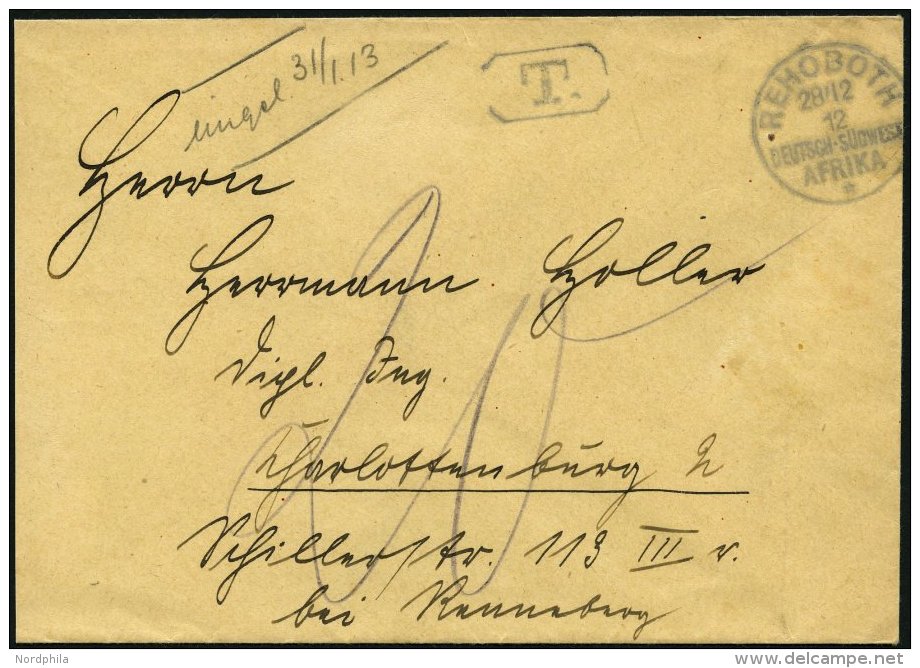 eingel. 31/1.13
T.
REHOBOTH
28/12
12
DEUTSCH-SÜDWEST
AFRIKA
Herrn
Herrmann Holler
Dipl. Ing.
20
Charlottenburg 2
Schillerstr. 113 III r.
bei Renneberg
Nordphila
delcampe.net